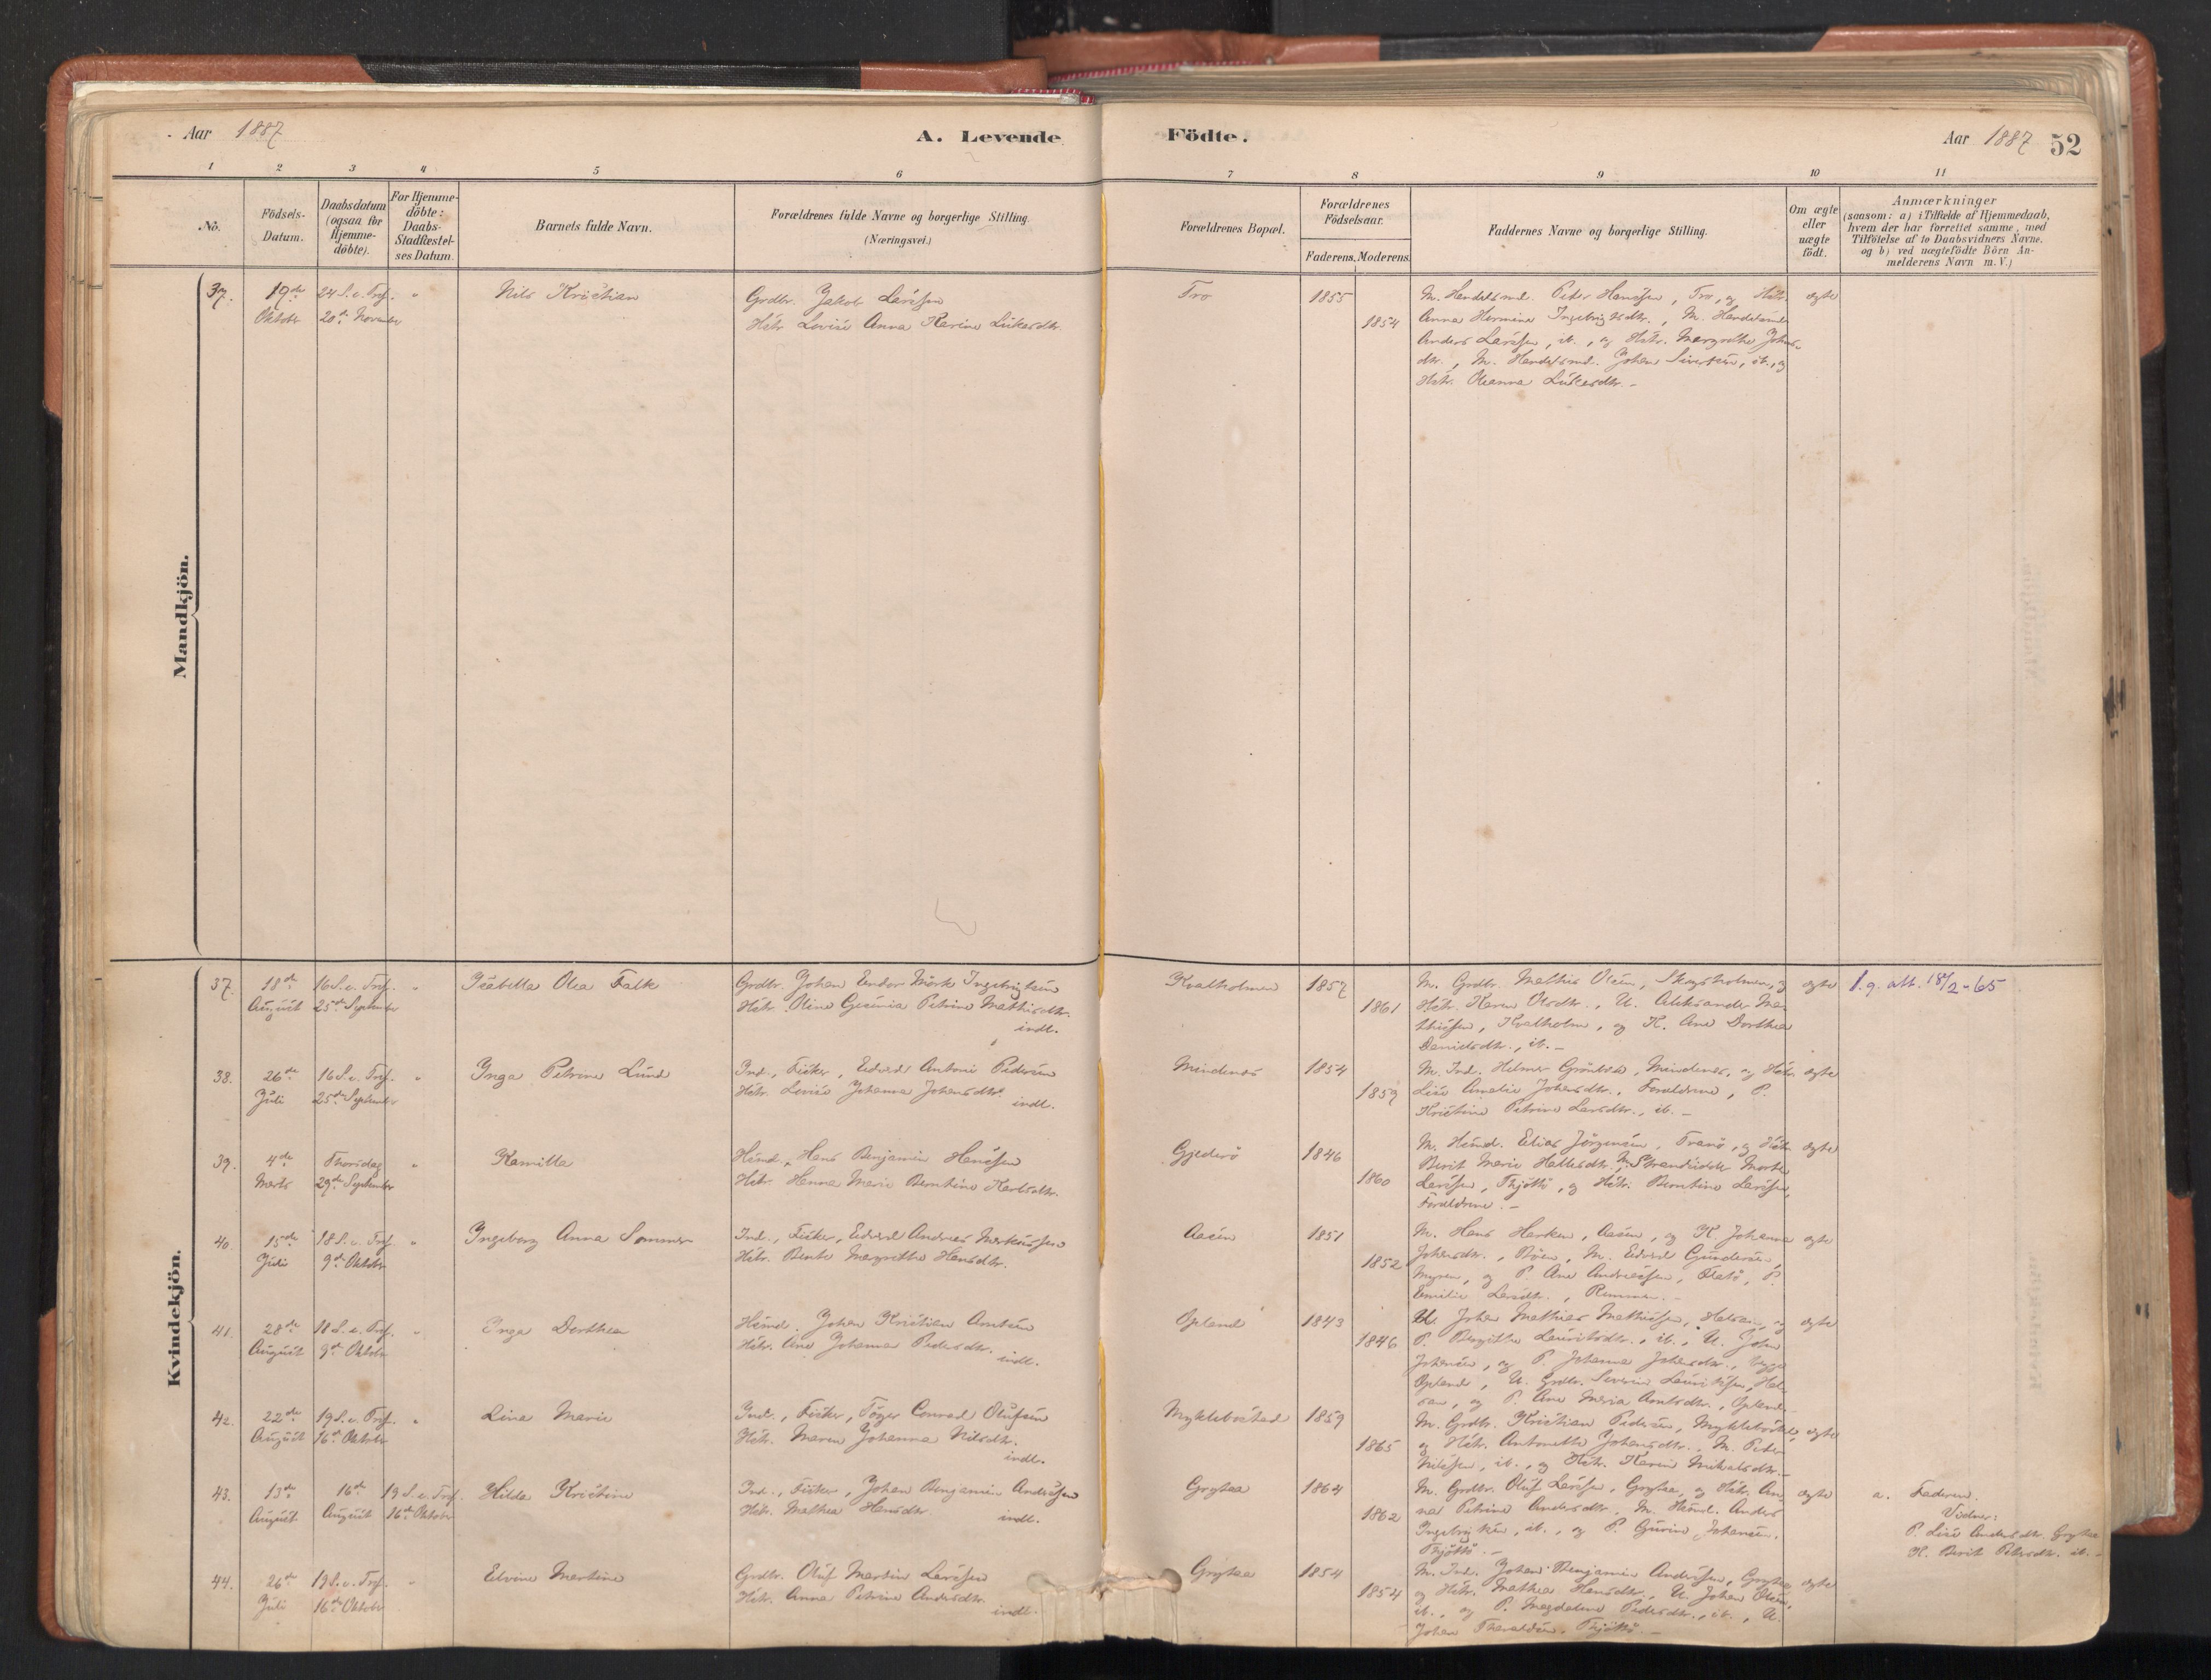 Aar 1887
A. Levende
Födte.
Aar 1887 52
1 2 3 4 5 6 7 8 9 10 11
No.
Födsels-
Datum.
Daabsdatum
(ogsaa for
Hjemme-
döbte).
For Hjemme-
döbte:
Daabs-
Stadfæstel-
ses Datum.
Barnets fulde Navn.
Forældrenes fulde Navne og borgerlige Stilling.
(Næringsvei.)
Forældrenes Bopæl.
Forældrenes
Födselsaar.
Faderens. Moderens.
Faddernes Navne og borgerlige Stilling.
Om ægte
eller
uægte
födt.
Anmærkninger
(saasom: a) i Tilfælde af Hjemmedaab,
hvem der har forrettet samme, med
Tilföielse af to Daabsvidners Navne.
og b) ved uægtefödte Börn An-
melderens Navn m. V.)
Mandkjön.
37.
19de
Oktober
24 S. e. Tref.
20de November
"
Nils Kristian
Grdbr. Jakob Larssen
Hstr. Lovise Anna Karine Lukasdtr.
Tro
1855
1854
M. Handelsmd. Peter Hanssen, Tro, og Hstr.
Anna Hermina Ingebrigtsdtr., M. Handelsmd.
Anders Larssen, ib., og Hstr. Margrethe Johns-
dtr., M. Handelsmd. Johan Sivertsen, ib., og
Hstr. Oleanna Lukasdtr. –
ægte
Kvindekjön.
37.
18de
August
16 S. e. Tref.
25de September
"
Isabella Olea Falk
Grdbr. Johan Endor Mörk Ingebrigtsen
Hstr. Oline Gesinia Petrine Mathisdtr.
indl.
Kvalholmen
1857
1861
M. Grdbr. Mathis Olsen, Skogsholmen, og
Hstr. Karen Olsdtr., U. Aleksander Ma-
thissen, Kvalholm, og K. Ane Dorthea
Danielsdtr., ib. –
ægte
1.g. att. 18/2-65
38.
26de
Juli
16 S. e. Tref.
25de September
"
Inga Petrine Lund
Ind., Fisker, Edvard Antoni Pedersen
Hstr. Lovise Johanna Johansdtr.
indl.
Mindenes
1854
1859
M. Ind. Helmer Grönbeck, Mindenes, og Hstr.
Lise Amalie Johansdtr., Forældrene, P.
Kristine Petrine Larsdtr., ib. –
ægte
39.
4de
Marts
Thorsdag
29de September
"
Kamilla
Hsmd. Hans Benjamin Hanssen
Hstr. Hanna Marie Berntine Karlsdtr.
Gjederö
1846
1860
M. Hsmd. Elias Jörgensen, Tranö, og Hstr.
Berit Marie Hallesdtr., M. Strandsidder Morten
Larssen, Thjöttö, og Hstr. Berntine Larssen,
Forældrene. –
ægte
40.
15de
Juli
18 S. e. Tref.
9de Oktober
"
Ingeborg Anna Sommer
Ind., Fisker, Edvard Andreas Markussen
Hstr. Bente Margrethe Hansdtr.
Aasen
1851
1852
M. Hans Hansen, Aasen, og K. Johanna
Johansdtr., Böen, M. Edvard Gundersen,
Myren, og P. Ane Andreassen, P.
Emilie Larsdtr., Remmen. –
ægte
41.
28de
August
18 S. e. Tref.
9de Oktober
"
Inga Dorthea
Hsmd. Johan Kristian Arntsen
Hstr. Ane Johanna Pedersdtr.
indl.
Opland
1843
1846
U. Johan Mathias Mathissen, og
P. Bergithe Lauritsdtr., ib., U. John
Johansen, og P. Johanna Johansdtr., begge
Opland, U. Grdbr. Severin Lauritssen,
og P. Ane Maria Arntsdtr., Opland. –
ægte
42.
22de
August
19 S. e. Tref.
16de Oktober
"
Lina Marie
Ind., Fisker, Töger Conrad Olufsen
Hstr. Maren Johanna Nilsdtr.
indl.
Myklebostad
1859
1865
M. Grdbr. Kristian Pedersen, Myklebostad,
og Hstr. Antonette Johansdtr., M. Peder
Nilssen, ib., og Hstr. Karen Mikalsdtr. –
ægte
43.
13de
August
16de
August
19 S. e. Tref.
16de Oktober
Hilda Kristine
Ind., Fisker, Johan Benjamin Andersen
Hstr. Mathea Hansdtr.
indl.
Grytaa
1864
1862
M. Grdbr. Oluf Larssen, Grytaa, og Hstr. An-
na Petrine Andersdtr., M. Hsmd. Anders
Ingebrigtsen, ib., og P. Gurine Johansen,
Thjöttö. –
ægte
a. Faderen.
Vidner:
P. Lise Andersdtr. Grytaa
K. Berit Pedersdtr. ib. –
44.
26de
Juli
19 S. e. Tref.
16de Oktober
"
Elvine Martine
Grdbr. Oluf Martin Larssen
Hstr. Anna Petrine Andersdtr.
indl.
Grytaa
1854
1854
M. Ind. Johan Benjamin Andersen, Grytaa,
og Hstr. Mathea Hansdtr., U. Johan Olsen,
ib., og P. Magdalena Pedersdtr., ib., U.
Johan Thoraldsen, Thjöttö. –
ægte